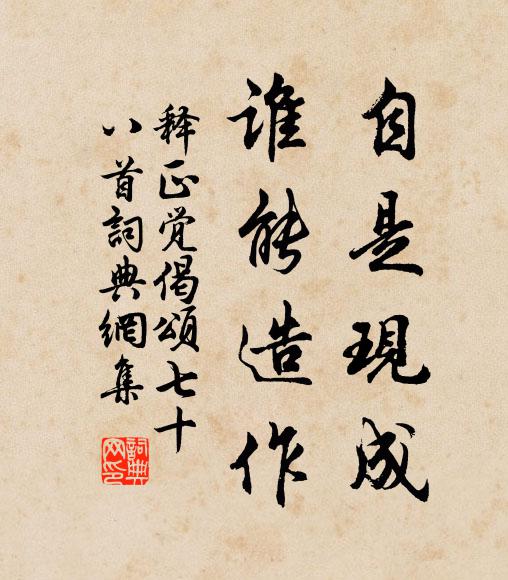 自是現成
谁能造作
释正觉偈頌七十
八首詞典網集
詞典
网印